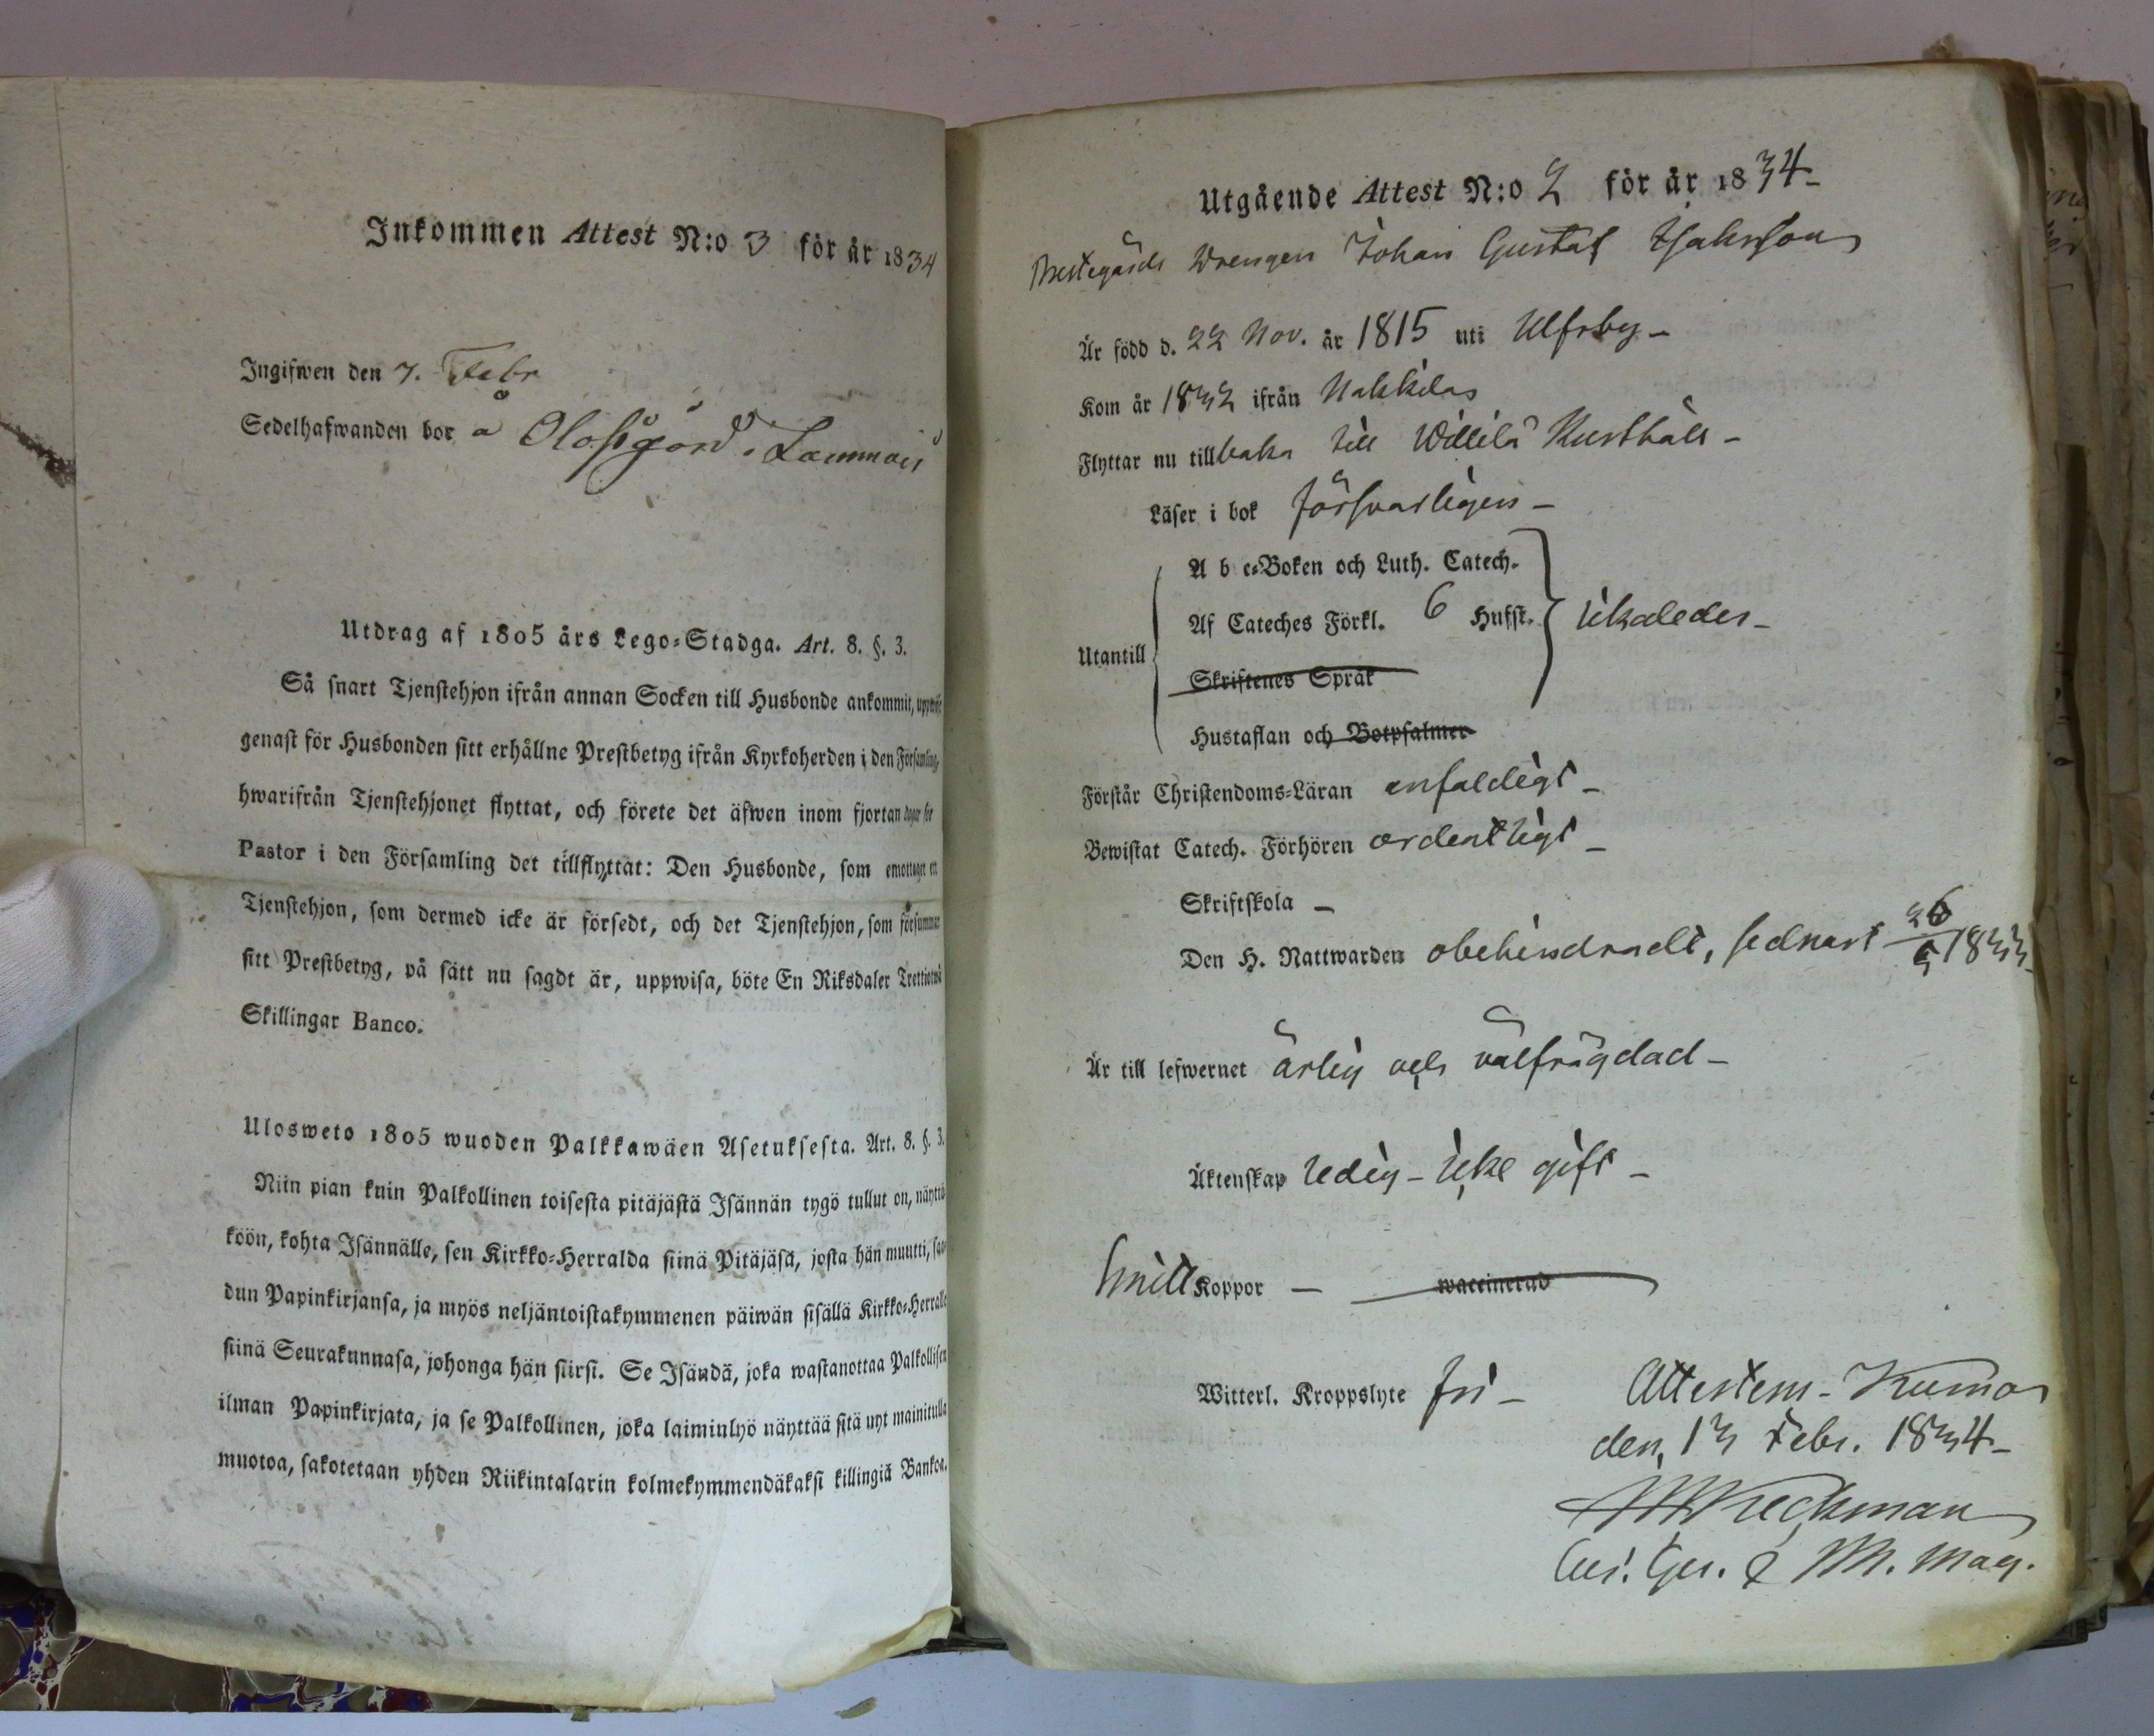 Inkommen Attest N:o 3 för år 1834
Ingifwen den 7. Febr
Sedelhafwanden bor å Olofsgård i Lammais
Utdrag af 1805 års Lego-Stadga. Art. 8. §. 3.
Så snart Tjenstehjon ifrån annan Socken till Husbonde ankommit,
genast för Husbonden sitt erhållne Prestbetyg ifrån Kyrkoherden i den Församling,
hwarifrån Tjenstehjonet flyttat, och förete det äfwen inom fjortan dagar för
Pastor i den Församling det tillflyttat: Den Husbonde, som emottager ett
Tjenstehjon, som dermed icke är försedt, och det Tjenstehjon, som försummar
sitt Prestbetyg, på sätt nu sagdt är, uppwisa, böte En Riksdaler Trettiotwå
Skillingar Banco.
Ulosweto 1805 wuoden Palkkawäen Asetuksesta. Art. 8. §. 3.
Niin pian kuin Palkollinen toisesta pitäjästä Isännän tygö tullut on, näyttä-
köön, kohta Isännälle, sen Kirkko-Herralda siinä Pitäjäsä, josta hän muutti, saa-
dun Papinkirjansa, ja myös neljäntoistakymmenen päiwän sisällä Kirkko-Herralle
siinä Seurakunnasa, johonga hän siirsi. Se Isändä, joka wastanottaa Palkollisen
ilman Papinkirjata, ja se Palkollinen, joka laiminlyö näyttää sitä nyt mainitulla
muotoa, sakotetaan yhden Riikintalarin kolmekymmendäkaksi killingiä Bankoa.
Utgående Attest N:o 2 för år 1834-
Prestegårds Drengen Johan Gustaf Isaksson
Är född d. 22 Nov. år 1815 uti Ulfsby-
Kom år 1832 ifrån Nakkila
Flyttar nu tillbaka till Willilä Rusthåll-
Läser i bok försvarligen-
A b c-Boken och Luth. Catech.
Af Cateches Förkl. 6 Hufst. likaledes-
Utantill
Skriftenes Språk
Hustaflan och Botpsalmer
Förstår Christendoms-Läran enfaldigt-
Bewistat Catech. Förhören ordentligt-
Skriftskola -
Den H. Nattwarden obehindradt, sednast 26/5 1833-
Är till lefwernet ärlig och välfrägdad-
Äktenskap ledig - icke gift-
Koppor - waccinerad
Witterl. Kroppslyte fri-
Attesterar- Kumo
den 13 Febr. 1834-